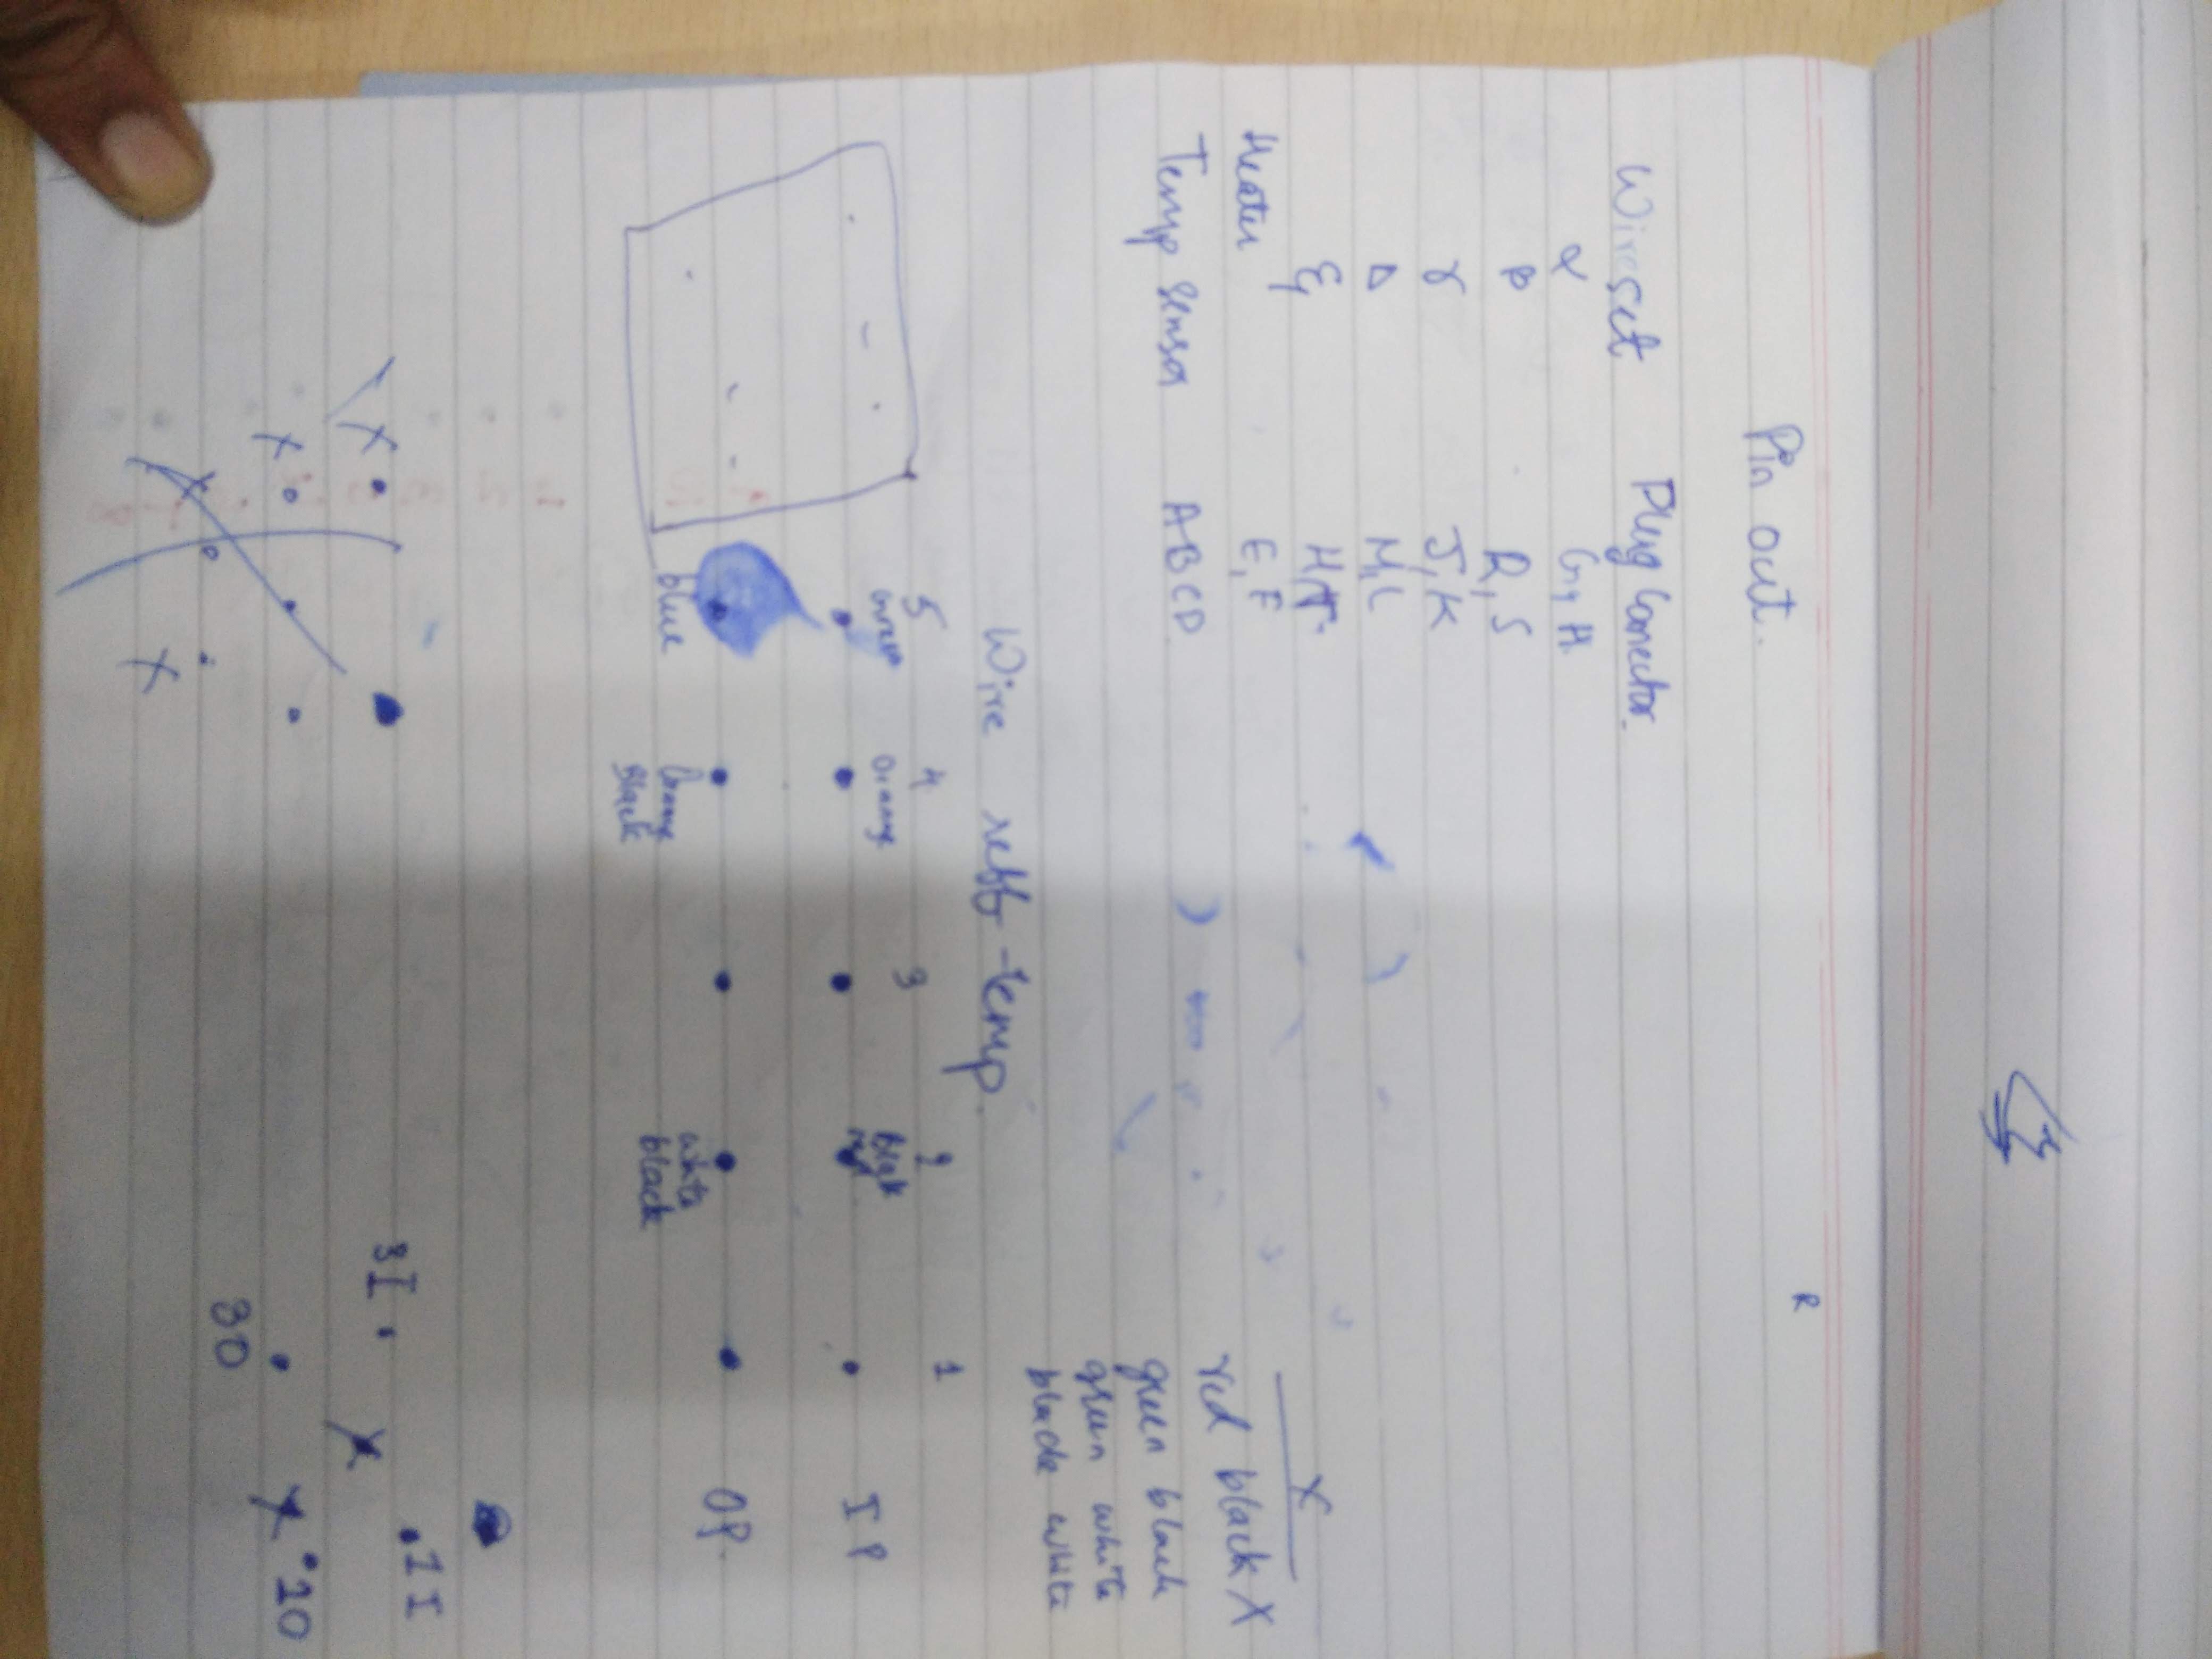 R
Pin out.
Wire set Plug Conector.
α G, H
β R, S
γ J, K
Δ M, L
ξ
Heater E, F
Temp Sensor A B C D
X
red black X
green black
green white
black white
Wire reff-temp.
5 4 3 2 1
green orange black red
I P
OP.
blue orange black white black
1 I
3 I
20
30